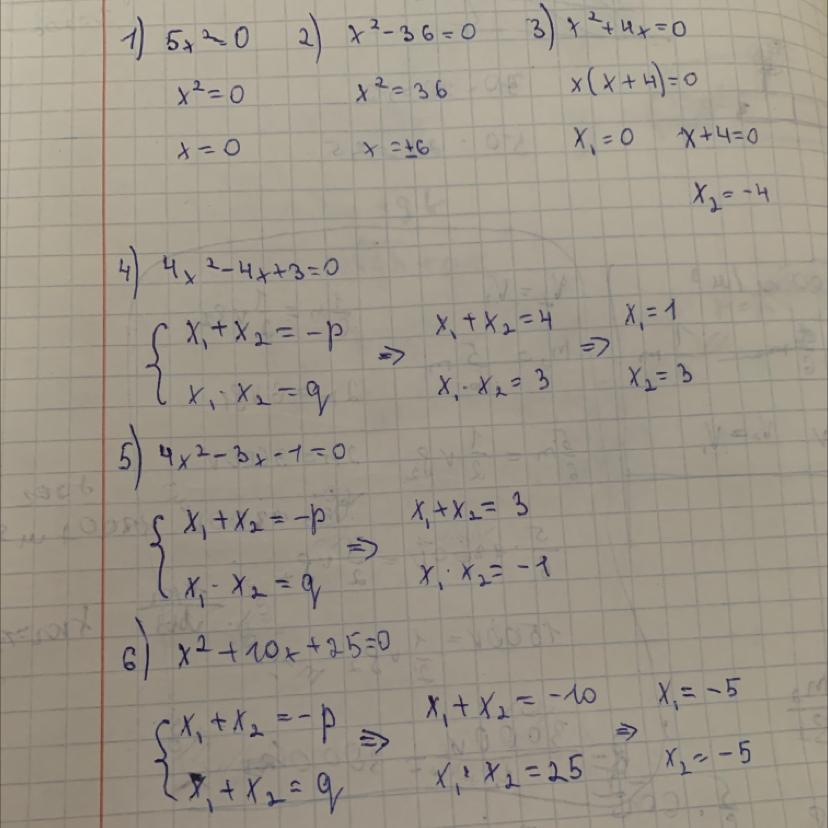 1) 5x² = 0 2) x² - 36 = 0 3) x² + 4x = 0
x² = 0 x² = 36 x(x + 4) = 0
x = 0 x = ±6 x₁ = 0 x + 4 = 0
x₂ = -4
4) 4x² - 4x + 3 = 0
{ x₁ + x₂ = -p ⇒ x₁ + x₂ = 4 ⇒ x₁ = 1
x₁ · x₂ = q x₁ · x₂ = 3 x₂ = 3
5) 4x² - 3x - 1 = 0
{ x₁ + x₂ = -p ⇒ x₁ + x₂ = 3
x₁ · x₂ = q x₁ · x₂ = -1
6) x² + 10x + 25 = 0
{ x₁ + x₂ = -p ⇒ x₁ + x₂ = -10 ⇒ x₁ = -5
x₁ + x₂ = q x₁ · x₂ = 25 x₂ = -5